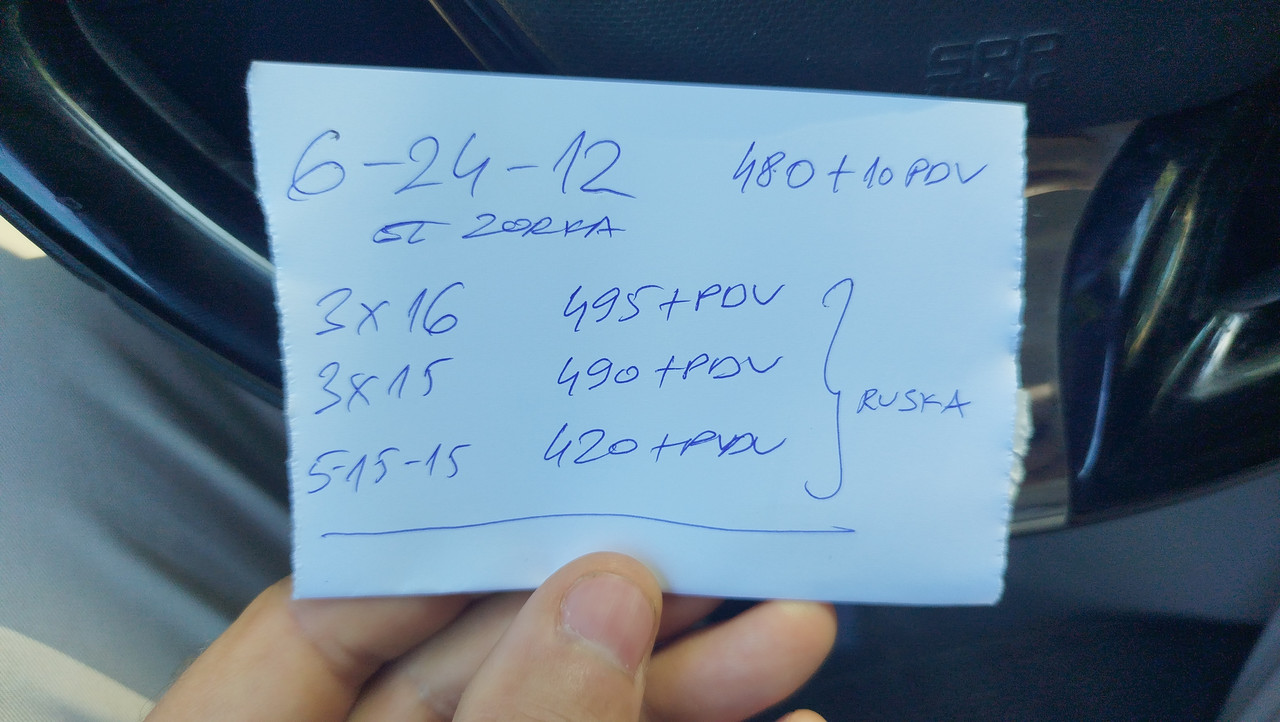 6-24-12 480+10 PDV
ZORKA
3x16 495+PDV
3x15 490+PDV
5-15-15 420+PDV
RUSKA
SRP